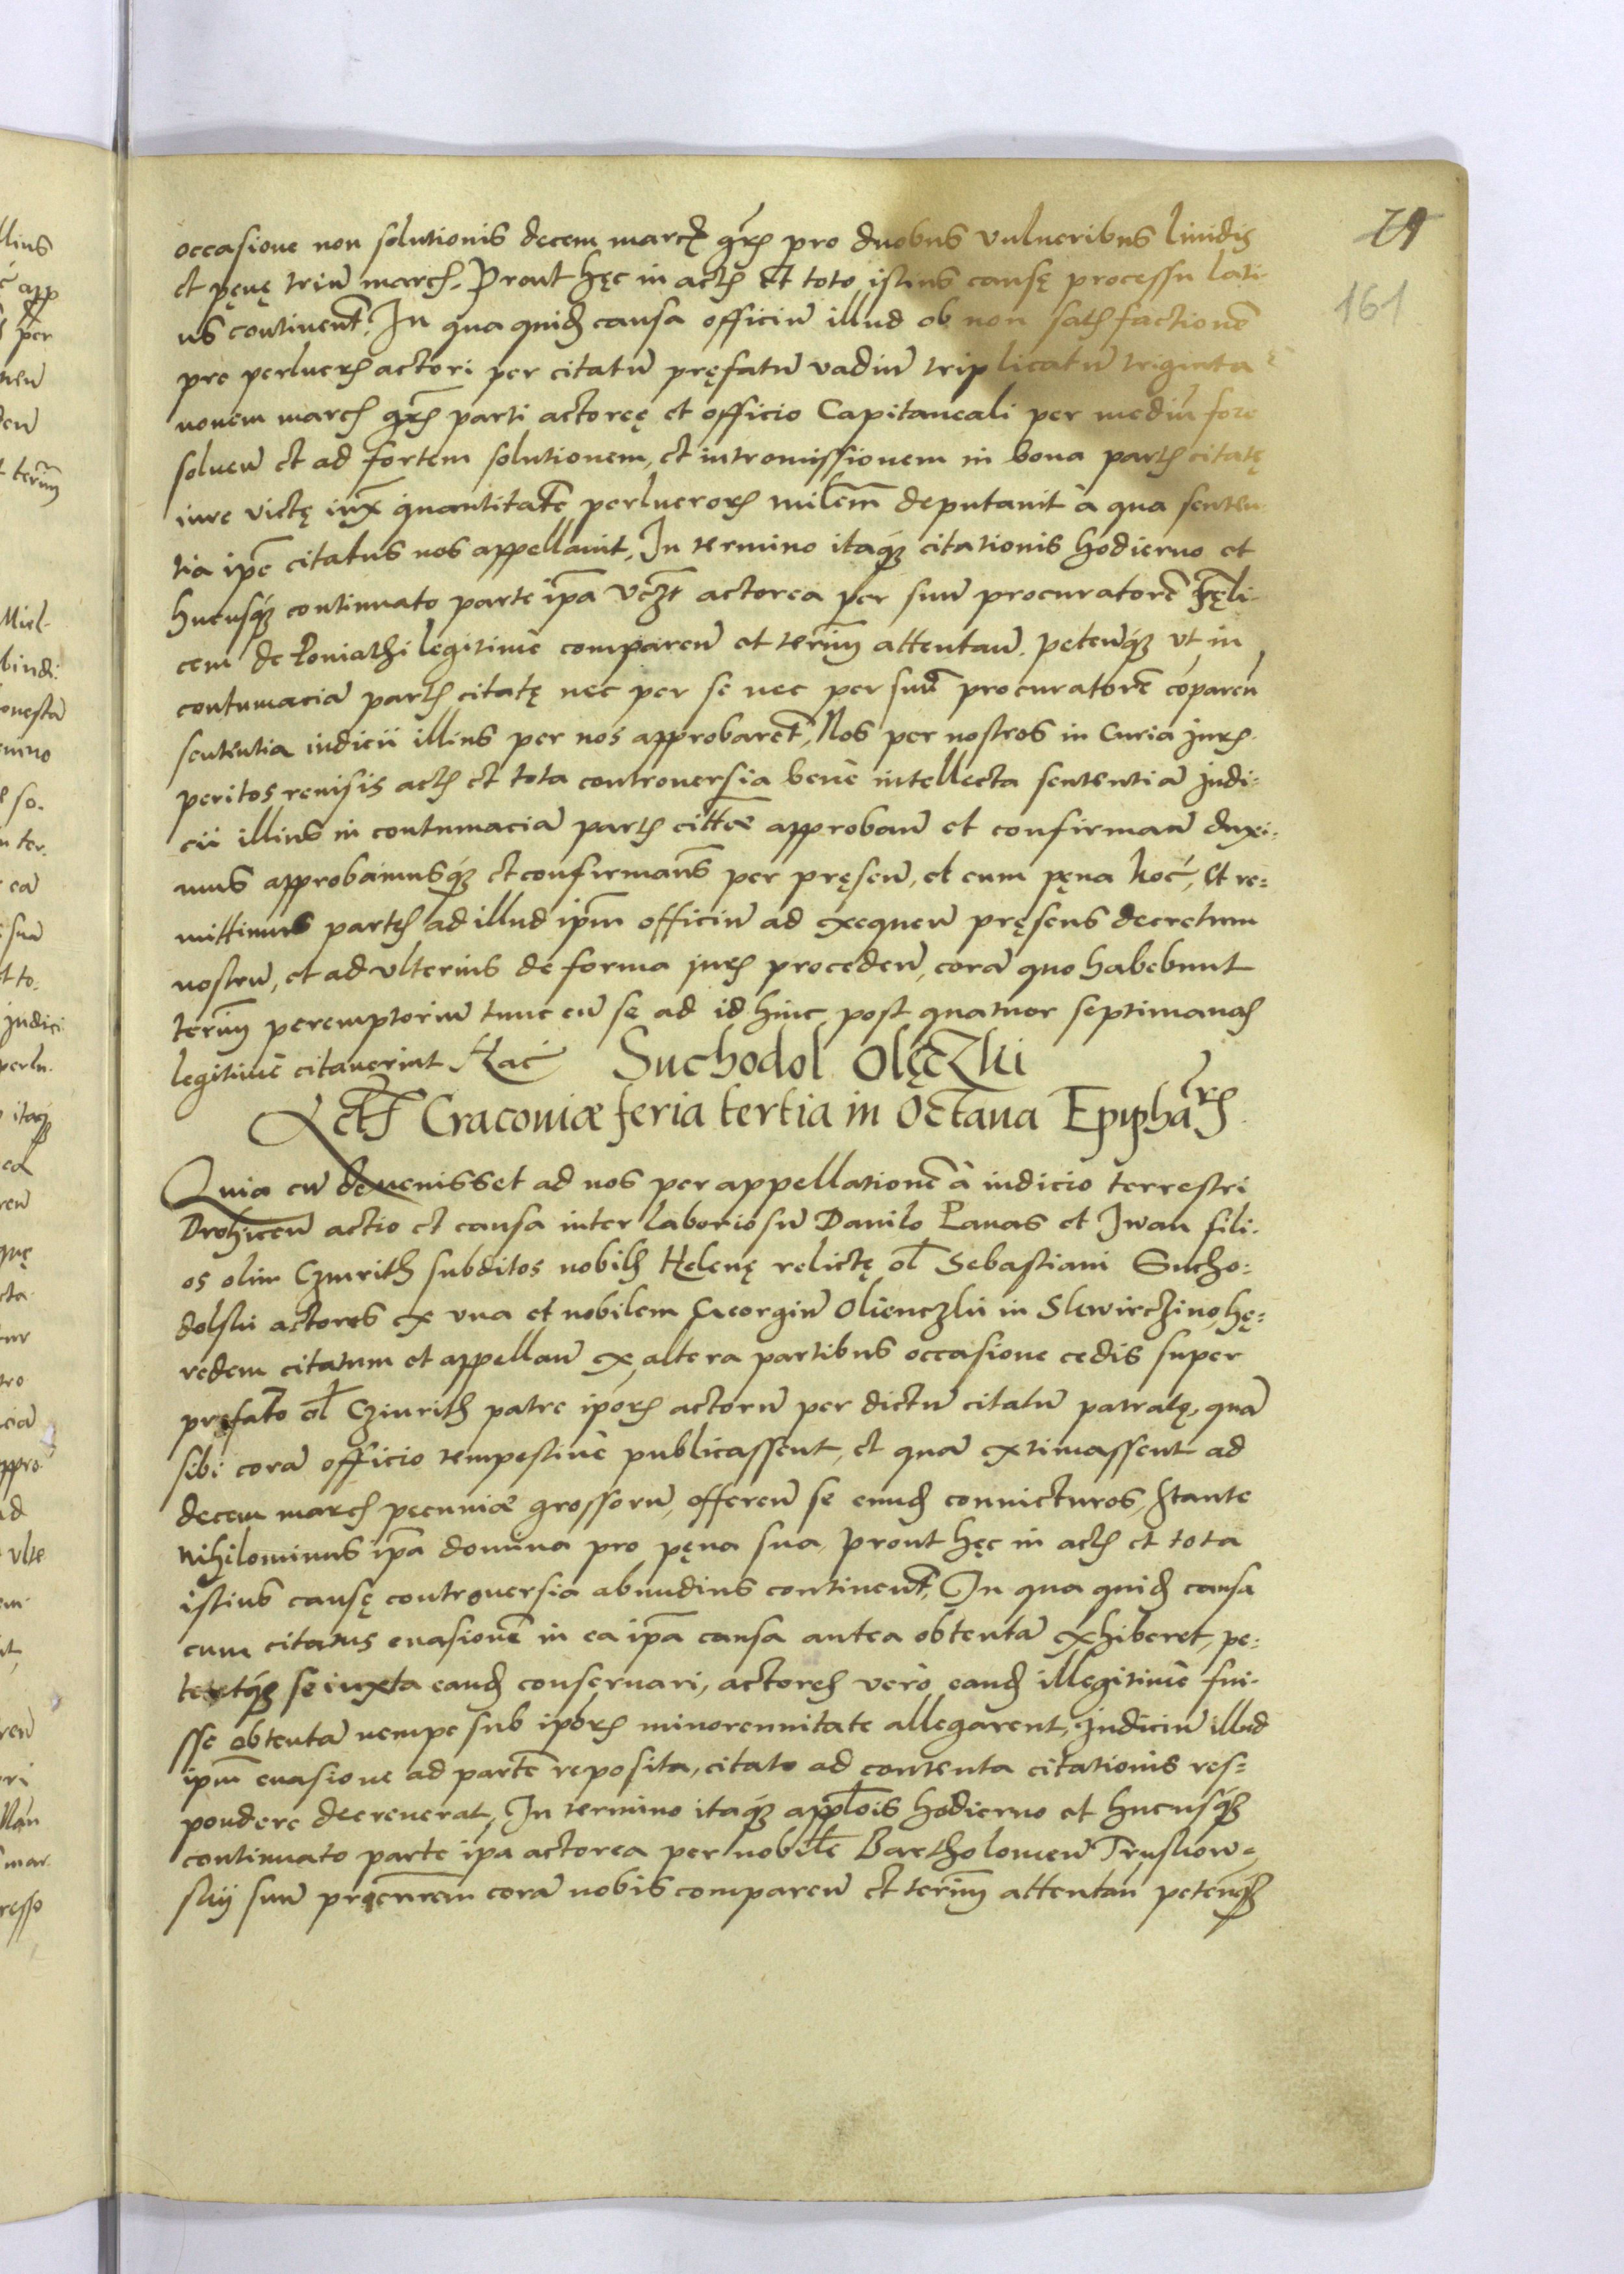 79
161
occasione non solutionis decem marcꝝ gꝛ̄ꝭ pro duobus vulneribus liuidis
et pęnę triū marcꝭ. Prout hęc in actꝭ et toto istius causę processu lati-
us continent̄. In qua quidꝫ causa officiū illud ob non satꝭfactionē
pre perluerꝭ actori per citatū pręfatū vadiū triplicatū triginta
nouem marcꝭ gꝛ̄ꝭ parti actoreę et officio Capitaneali per mediū fore
soluen̄ et ad fortem solutionem, et intromissionem in bona partꝭ citatę
iure victę iux̄ quantitatē perluerorꝭ mil̄em̄ deputauit à qua senten-
tia ip̄e citatus nos appellauit, In termino itaqꝫ citationis hodierno et
hucusqꝫ continuato parte ip̄a vcꝫt actorea per suū procuratorē Fęli-
cem de Poniathi legitimè comparen̄ et ter̄im̄ attentan̄. petenqꝫ vt in
contumaciā partꝭ citatę nec per se nec per suū procuratorē cōparen̄
sententia iudicii illius per nos approbaret̄, Nos per nostros in Curia Jurꝭ
peritos reuisis actꝭ et tota controuersia benè intellecta sententiā Judi-
cii illius in contumaciā partꝭ cittæ approban̄ et confirman̄ duxi-
mus approbamusqꝫ et confirmam̄s per pręsen̄, et cum pęna hoc̄, Et re-
mittimus partꝭ ad illud ip̄m officiū ad exequen̄ pręsens decretum
nostrū, et ad vlterius de forma Jurꝭ proceden̄, corā quo habebunt
ter̄im̄ peremptoriū tunc cū se ad id hinc post quatuor septimanaꝭ
legitimè citauerint Hac̄ Suchodol Olęczki
Actꝭ Cracouiæ feria tertia in Octaua Epipha͞rꝭ
Quia cū deuenisset ad nos per appellationē à iudicio terrestri
Drohicen̄ actio et causa inter laboriosū Danilo Panas et Jwan fili-
os olim Czurith subditos nobilꝭ Helenę relictę ol̄ Sebastiani Sucho-
dolski actores ex vna et nobilem Georgiū Olienczki in Skwirczino hę-
redem citatum et appellan̄ ex altera partibus occasione cedis super
pręfato ol̄ Cziurith patre iporꝭ actorū per dictū citatū patratę, quā
sibi corā officio tempestiuè publicassent, et quā extimassent ad
decem marcꝭ pecuniæ grossorū, offeren̄ se eundꝫ conuicturos, Stante
nihilominus ip̄a domina pro pęna sua, prout hęc in actꝭ et tota
istius causę controuersia abundius continent̄, In qua quidꝫ causa
cum citatus euasionē in ea ip̄a causa antea obtentā exhiberet, pe-
teretqꝫ se iuxta eandꝫ conseruari, actoreꝭ verò eandꝫ illegitimè fui-
sse obtentā nempe sub iporꝭ minorennitate allegarent, Judiciū illud
ip̄m euasione ad partē reposita, citato ad contenta citationis res-
pondere decreuerat, In termino itaqꝫ app̄lois hodierno et hucusqꝫ
continuato parte ipa actorea per nobilē Bartholomeū Truskow-
skij suū procur̄em corā nobis comparen̄ et ter̄im̄ attentan̄ petenqꝫ